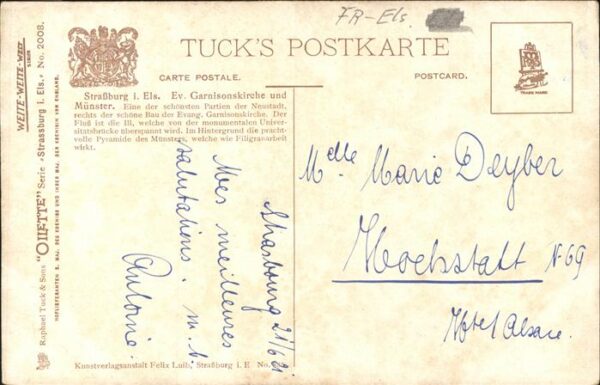 FR-Els.
TUCK'S POSTKARTE
CARTE POSTALE.
POSTCARD.
TRADE MARK
Straßburg i. Els. Ev. Garnisonskirche und
Münster. Eine der schönsten Partien der Neustadt,
rechts der schöne Bau der Evang. Garnisonskirche. Der
Fluß ist die Ill, welche von der monumentalen Univer-
sitätsbrücke überspannt wird. Im Hintergrund die pracht-
volle Pyramide des Münsters, welche wie Filigranarbeit
wirkt.
WEITE-WEITE-WELT
SERIE
Raphael Tuck & Sons "OILETTE" Serie «Strassburg i. Els.» No. 2008.
HOFLIEFERANTEN S. MAJ. DES KÖNIGS UND IHRER MAJ. DER KÖNIGIN VON ENGLAND.
Strasbourg 21/6 21
Mes meilleures
salutations.
Antoine
Melle Marie Deyber
Hochstatt N 69
Hôtel Alsace.
Kunstverlagsanstalt Felix Luib, Straßburg i. E